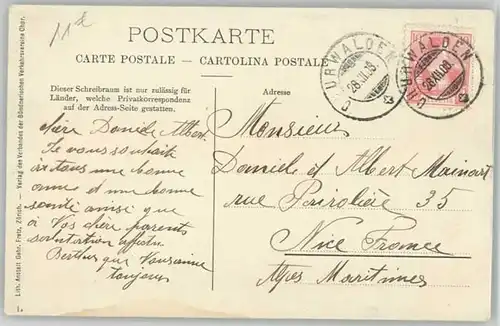 1 x
POSTKARTE
CARTE POSTALE — CARTOLINA POSTALE
Dieser Schreibraum ist nur zulässig für
Länder, welche Privatkorrespondenz
auf der Adress-Seite gestatten.
Adresse
CHURWALDEN
28.XII.08
CHURWALDEN
28.XII.08
chère Daniele Albert
Je vous souhait
à tous une bonne
anne et une bonne
santé ainsi que
à Vos chère parents
salutation
Berthe que
toujours
Monsieur
Daniele et Albert
rue 35
Nice France
Alpes Maritimes
Lith. Anstalt Gebr. Fretz, Zürich. — Verlag des Verbandes der Bündnerischen Verkehrsvereine Chur.
1.